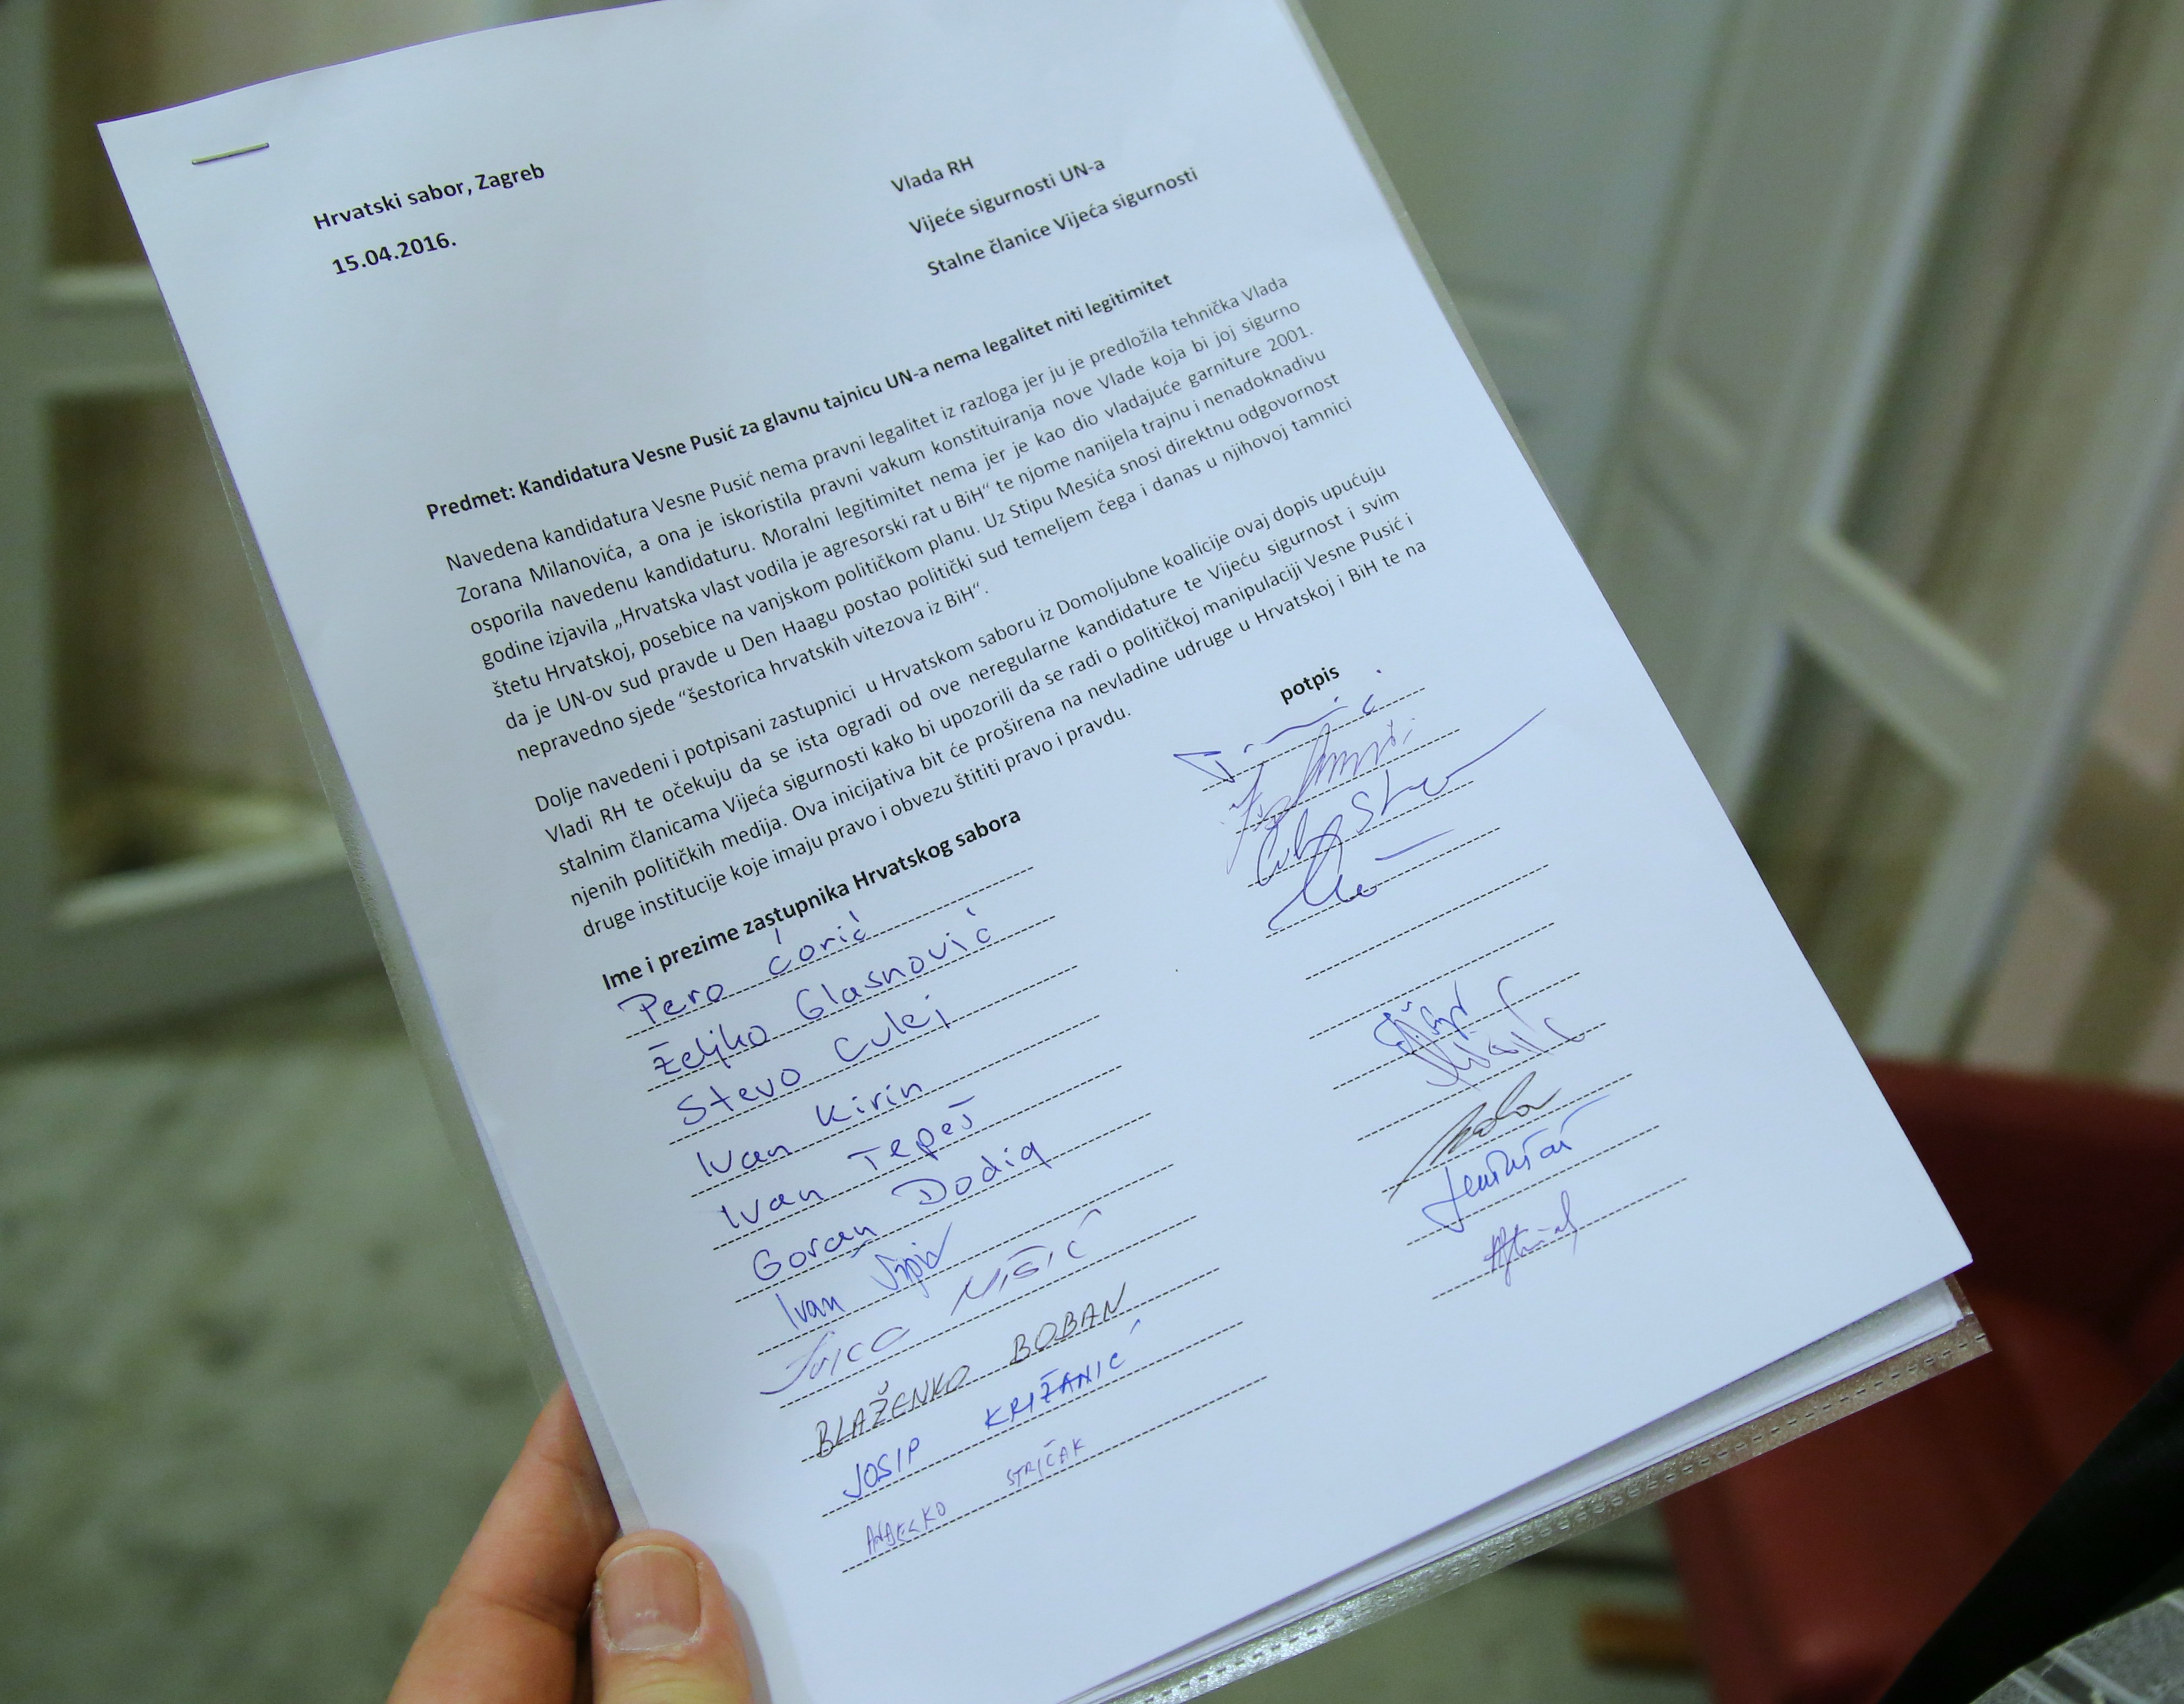 Hrvatski sabor, Zagreb
15.04.2016.
Vlada RH
Vijeće sigurnosti UN-a
Stalne članice Vijeća sigurnosti
Predmet: Kandidatura Vesne Pusić za glavnu tajnicu UN-a nema legalitet niti legitimitet
Navedena kandidatura Vesne Pusić nema pravni legalitet iz razloga jer ju je predložila tehnička Vlada
Zorana Milanovića, a ona je iskoristila pravni vakum konstituiranja nove Vlade koja bi joj sigurno
osporila navedenu kandidaturu. Moralni legitimitet nema jer je kao dio vladajuće garniture 2001.
godine izjavila „Hrvatska vlast vodila je agresorski rat u BiH“ te njome nanijela trajnu i nenadoknadivu
štetu Hrvatskoj, posebice na vanjskom političkom planu. Uz Stipu Mesića snosi direktnu odgovornost
da je UN-ov sud pravde u Den Haagu postao politički sud temeljem čega i danas u njihovoj tamnici
nepravedno sjede “šestorica hrvatskih vitezova iz BiH“.
Dolje navedeni i potpisani zastupnici u Hrvatskom saboru iz Domoljubne koalicije ovaj dopis upućuju
Vladi RH te očekuju da se ista ogradi od ove neregularne kandidature te Vijeću sigurnost i svim
stalnim članicama Vijeća sigurnosti kako bi upozorili da se radi o političkoj manipulaciji Vesne Pusić i
njenih političkih medija. Ova inicijativa bit će proširena na nevladine udruge u Hrvatskoj i BiH te na
druge institucije koje imaju pravo i obvezu štititi pravo i pravdu.
Ime i prezime zastupnika Hrvatskog sabora potpis
Pero Ćorić
Željko Glasnović
Stevo Culej
Ivan Kirin
Ivan Tepeš
Goran Dodig
Ivan
Ivica Mišić
BLAŽENKO BOBAN
JOSIP KRIŽANIĆ
ANĐELKO STRIČAK